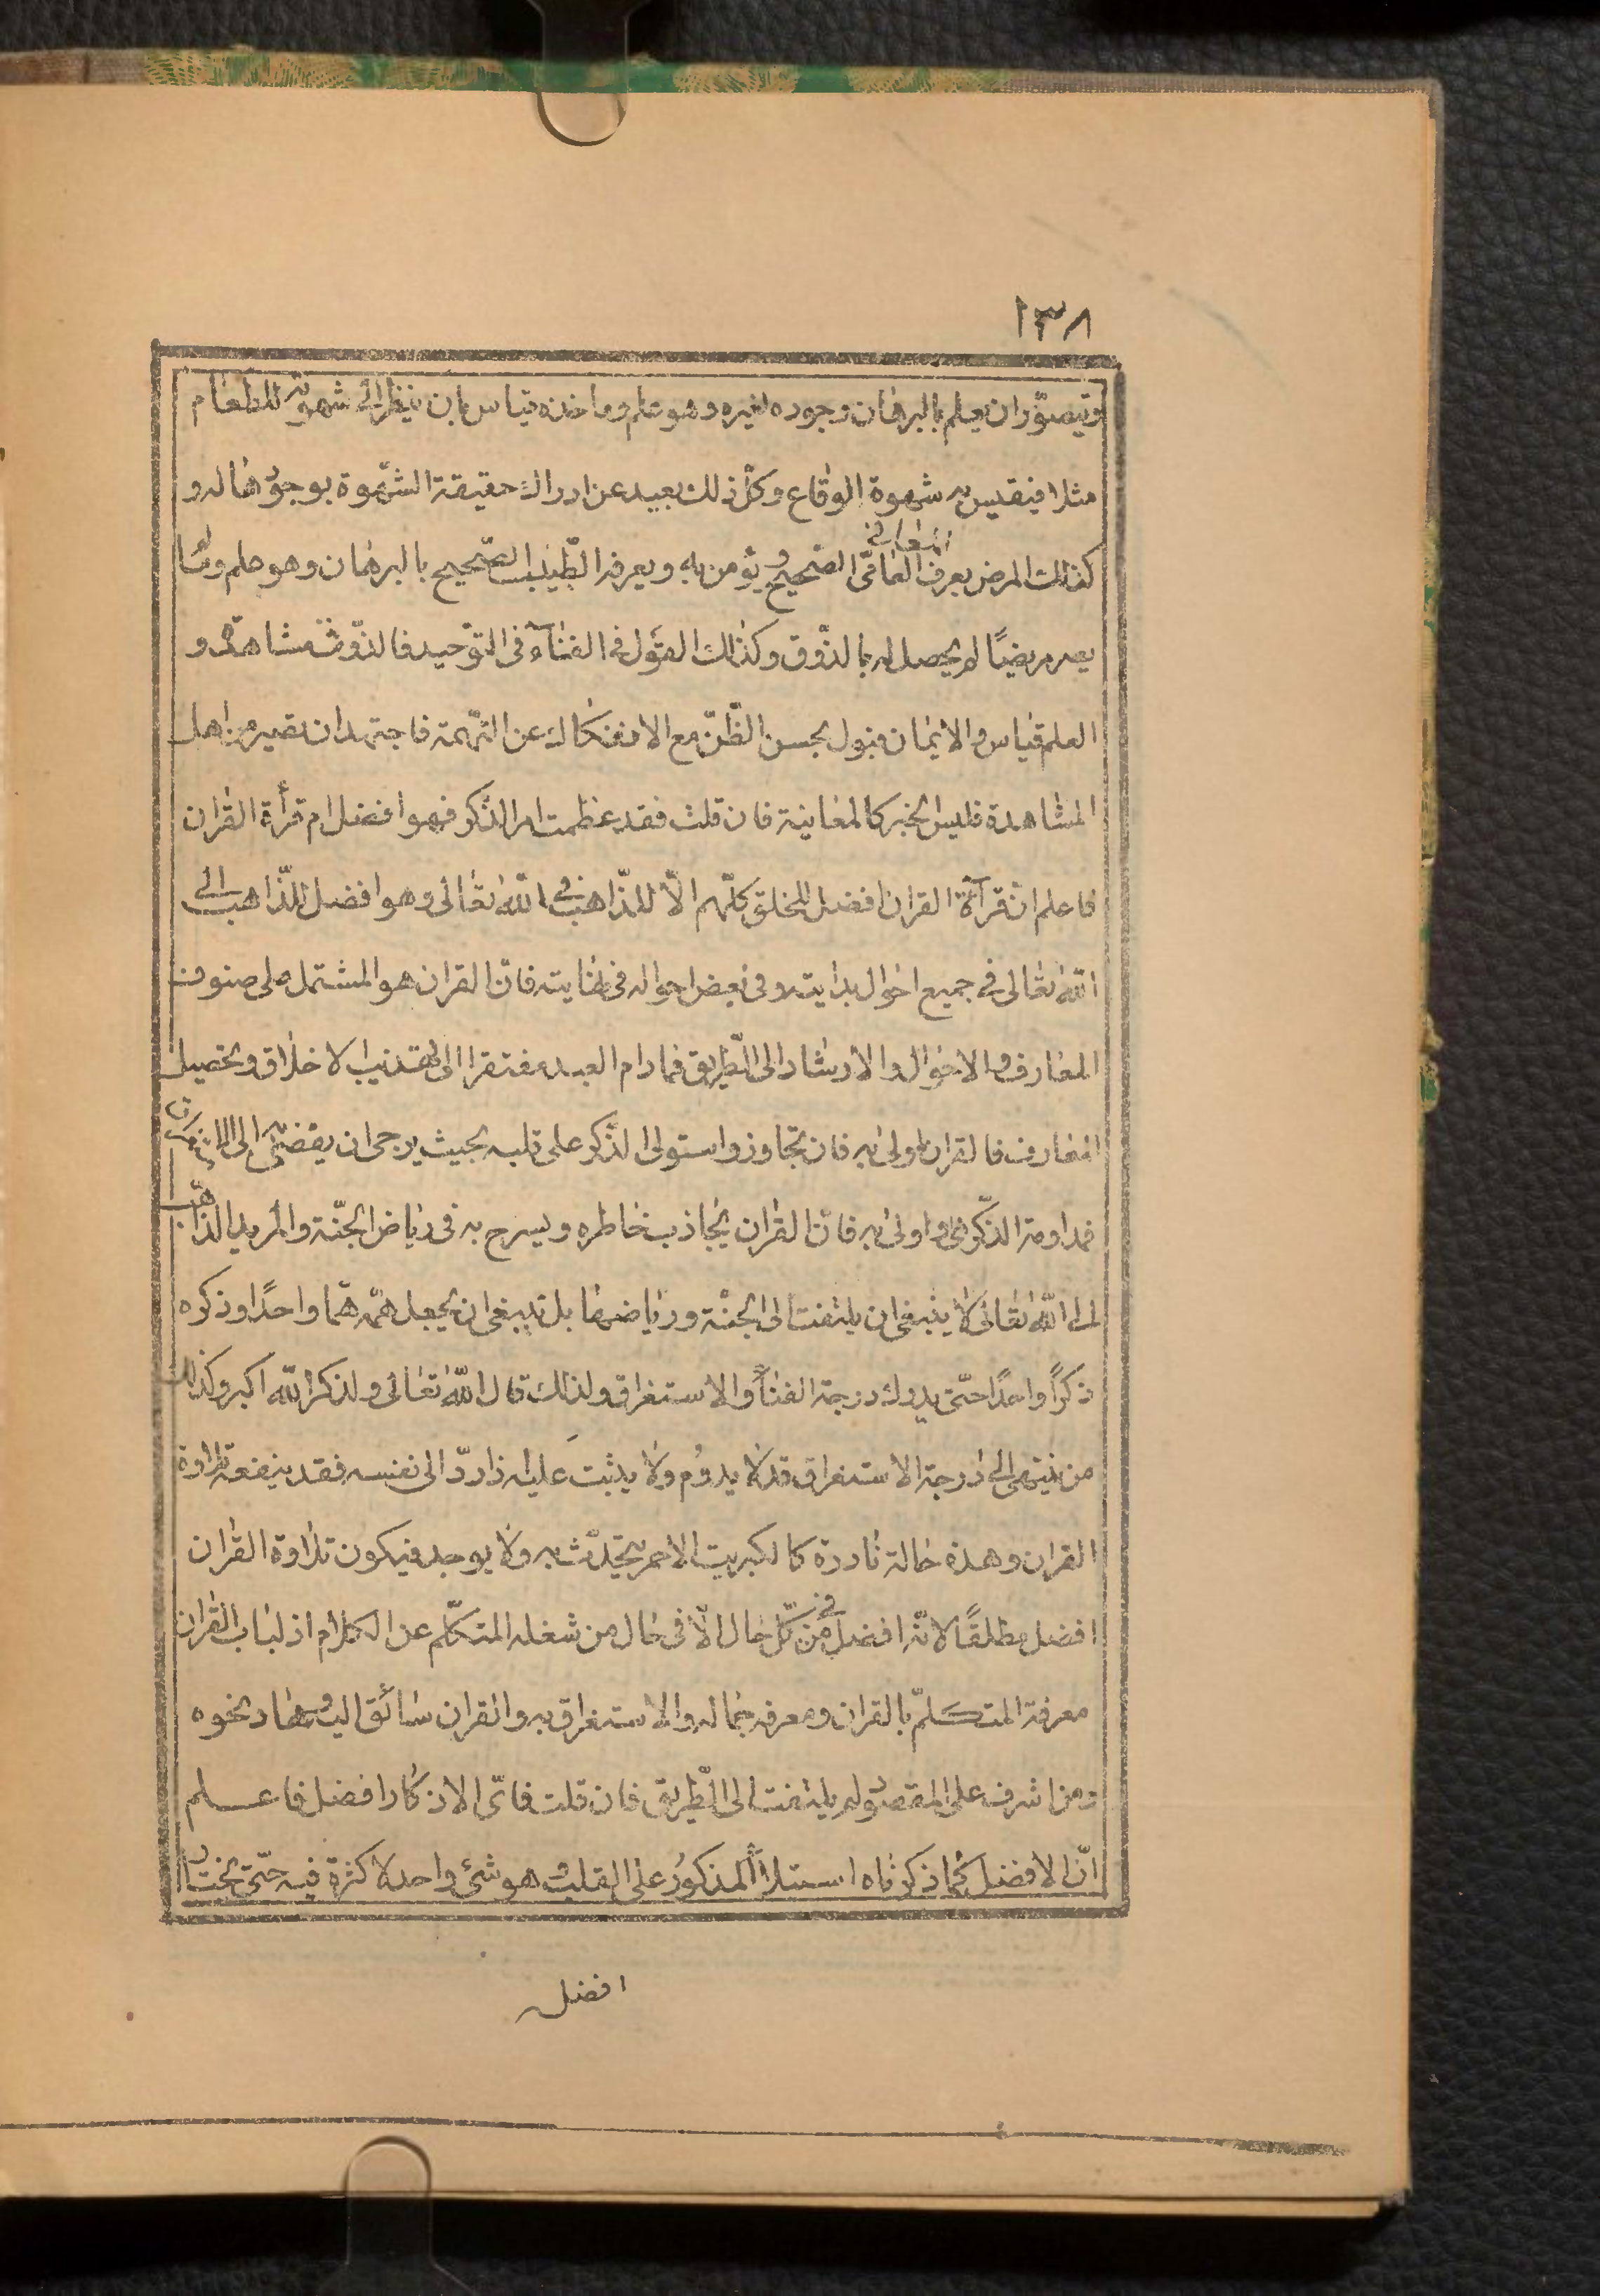 ١٣٨
ويتصوّر ان يعلم بالبرهان وجوده لغيره وهو علم وماخذه قياس بان ينظر الى شهوته للطعام
مثلا فيقيس به شهوة الوقاع وكلّ ذلك بعيد عن ادراك حقيقة الشّهوة بوجودها له و
كذلك المرض يعرف العامّى الصّحيح ويؤمن به ويعرفه الطّبيب الصّحيح بالبرهان وهو علم وما
يصر مريضًا لم يحصل له بالذّوق وكذلك القول فى الفناء فى التوحيد فالذّوق مشاهدة و
العلم قياس والايمان قبول بحسن الظّنّ مع الانفكاك عن التّهمة فاجتهد ان تصير من اهل
المشاهدة فليس الخبر كالمعاينة فان قلت فقد عظمت امر الذّكر فهو افضل ام قرأة القران
فاعلم انّ قرآئة القران افضل للخلق كلّهم الّا للذّاهب فى اللّه تعالى وهو افضل للذّاهب الى
اللّه تعالى فى جميع احوال بدايته وفى بعض احواله فى نهايته فانّ القران هو المشتمل على صنوف
المعارف والاحوال والارشاد الى الطّريق فمادام العبد مفتقرا الى تهذيب الاخلاق وتحصيل
المعارف فالقران اولى به فان تجاوز واستولى الذّكر على قلبه بحيث يرجى ان يفضى به الى الاستغراق
فمداومة الذّكر اولى به فانّ القران يجاذب خاطره ويسرح به فى رياض الجنّة والمريد الذّاهب
الى اللّه تعالى لا ينبغى ان يلتفت الى الجنّة ورياضها بل ينبغى ان يجعل همّه همّا واحدًا وذكره
ذكرًا واحدًا حتّى يدرك درجة الفناء والاستغراق ولذلك قال اللّه تعالى ولذكر اللّه اكبر وكذلك
من ينتهى الى درجة الاستغراق قد لا يدوم ولا يثبت عليه ذا ردّ الى نفسه فقد ينفعه تلاوة
القران وهذه حالة نادرة كالكبريت الاحمر يتحدّث به ولا يوجد فيكون تلاوة القران
افضل مطلقًا لانّه افضل من فى كلّ حال الّا فى حال من شغله المتكلّم عن الكلام اذ لباب القران
معرفة المتكلّم بالقران ومعرفة جماله والاستغراق به والقران سائق اليه وهاد نحوه
ومن اشرف على المقصود لم يلتفت الى الطّريق فان قلت فاىّ الاذكار افضل فاعلم
انّ الافضل كما ذكرناه استيلاء المذكور على القلب وهو شئ واحد لا كثرة فيه حتّى تختار
افضل